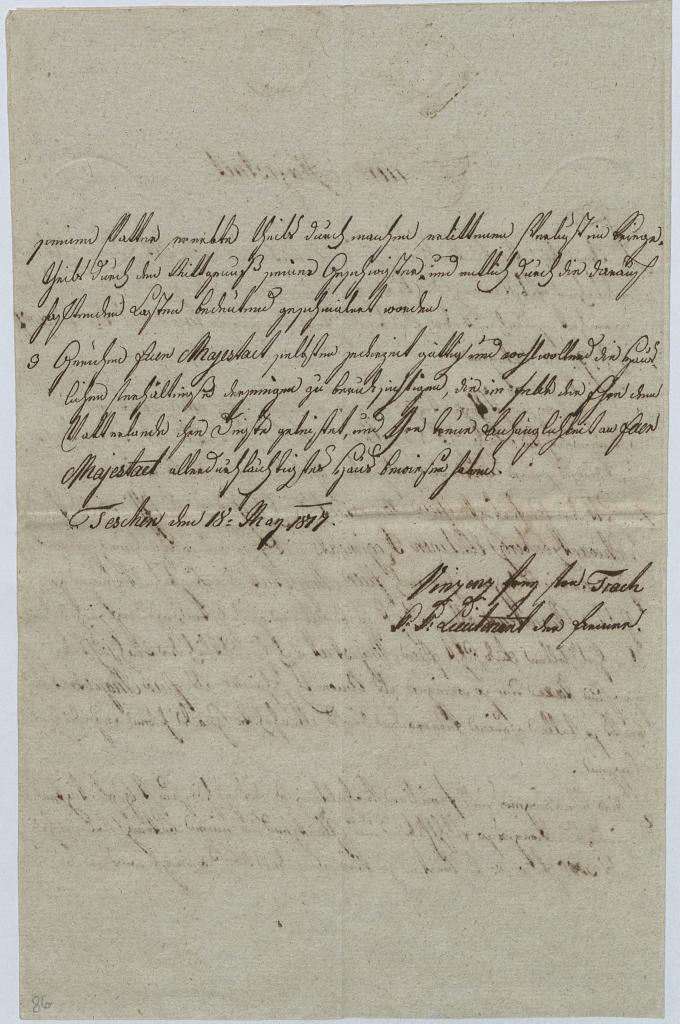 seinem Vatter ererbte theils durch manchen erlittenen Verlust im Kriege,
theils durch den Mittgenuß seiner Geschwister, und endlich durch die darauf
haftenden Lasten bedeutend geschmälert worden.
3 Geruhen Euer Majestaet selbsten jederzeit gättig und wohlwollend die häus-
lichen Verhältniße derjenigen zu berücksichtigen, die in die Ehre dem
Vatterlande ihre Dinste geleistet, und Ihre treue Anhänglichkeit an Euer
Majestaet allerdurchlauchtigstes Haus bewiesen haben.
Teschen den 18: May
Vinzenz von Trach
K: K: Lieutenant der
86